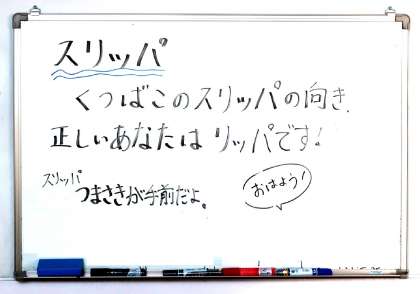 スリッパ
くつばこのスリッパの向き、
正しいあなたは リッパです!
スリッパ
つまさきが手前だよ。
おはよう!